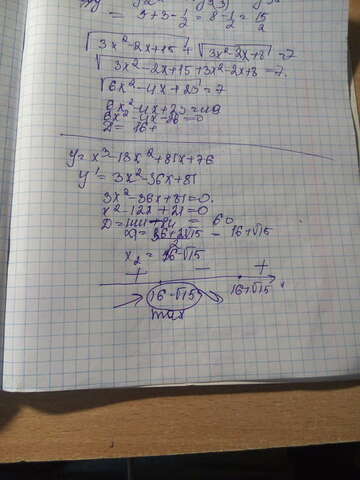 = 5+3-1/2 = 8-1/2 = 15/2
√3x²-2x+15 + √3x²-2x+8 = 7
√3x²-2x+15+3x²-2x+8 = 7.
√6x²-4x+23 = 7
6x²-4x+23=49
6x²-4x-26=0
D= 16+
y= x³-18x²+81x+76
y' = 3x²-36x+81
3x²-36x+81=0.
x²-12x+21=0
D=144-84 = 60
= 16+√15
x₂= 16-√15
+ - +
16-√15 16+√15
max